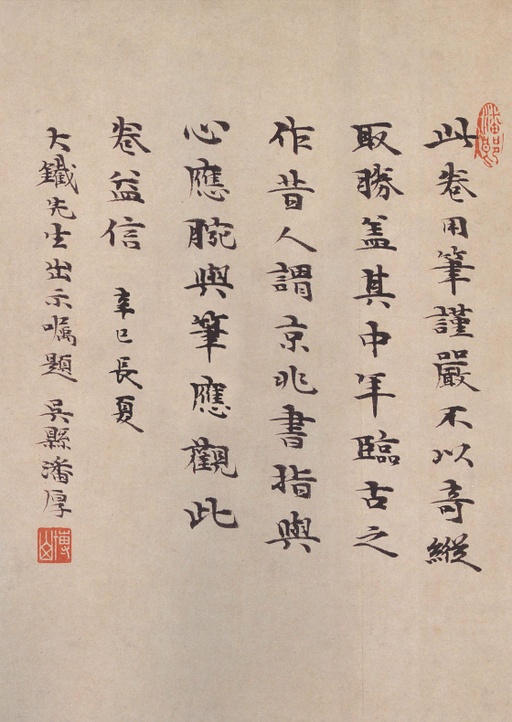 此卷用筆謹嚴不以奇縱
取勝盖其中年臨古之
作昔人謂京兆書指與
心應腕與筆應觀此
卷益信 辛巳長夏
大鐵先生出示嘱題 吳縣潘厚
博山